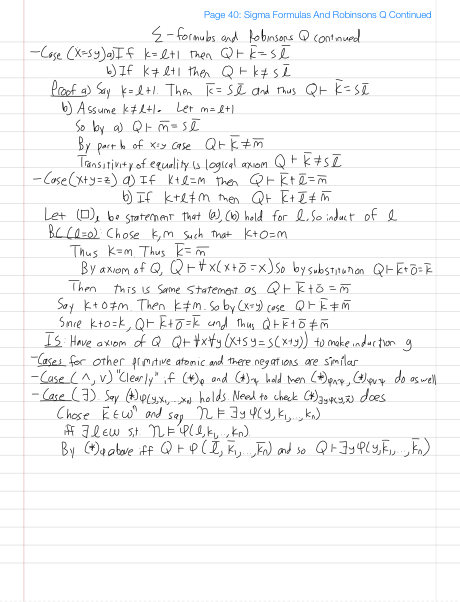 Page 40: Sigma Formulas And Robinsons Q Continued
Σ-formulas and Robinsons Q continued
-Case (x=sy) a) If k=ℓ+1 then Q⊢ k̄=sℓ̄
b) If k≠ℓ+1 then Q⊢ k̄≠sℓ̄
Proof a) Say k=ℓ+1. Then k̄=sℓ̄ and thus Q⊢ k̄=sℓ̄
b) Assume k≠ℓ+1. Let m=ℓ+1
So by a) Q⊢ m̄=sℓ̄
By part b of x=y case Q⊢ k̄≠m̄
Transitivity of equality is logical axiom Q⊢ k̄≠sℓ̄
-Case (x+y=z) a) If k+ℓ=m then Q⊢ k̄+ℓ̄=m̄
b) If k+ℓ≠m then Q⊢ k̄+ℓ̄≠m̄
Let (□)ℓ be statement that (a),(b) hold for ℓ. So induct of ℓ
BC (ℓ=0): Chose k,m such that k+0=m
Thus k=m. Thus k̄=m̄
By axiom of Q, Q⊢∀x(x+0̄=x) So by substitution Q⊢k̄+0̄=k̄
Then this is same statement as Q⊢k̄+0̄=m̄
Say k+0≠m. Then k≠m. So by (x=y) case Q⊢k̄≠m̄
Since k+0=k, Q⊢k̄+0̄=k̄ and thus Q⊢k̄+0̄≠m̄
IS: Have axiom of Q Q⊢∀x∀y(x+sy=s(x+y)) to make induction g
-Cases for other primitive atomic and there negations are similar
-Case (∧,∨) "Clearly" if (*)φ and (*)ψ hold then (*)φ∧ψ, (*)φ∨ψ do as well
-Case (∃). Say (*)φ(y,x₁,...,xₙ) holds Need to check (*)∃yφ(y,x̄) does
Chose k̄∈ωⁿ and say 𝔑⊨∃yφ(y,k₁,..,kₙ)
iff ∃ℓ∈ω s.t. 𝔑⊨φ(ℓ,k₁,..,kₙ)
By (*)φ above iff Q⊢φ(ℓ̄,k̄₁,...,k̄ₙ) and so Q⊢∃yφ(y,k̄₁,...,k̄ₙ)